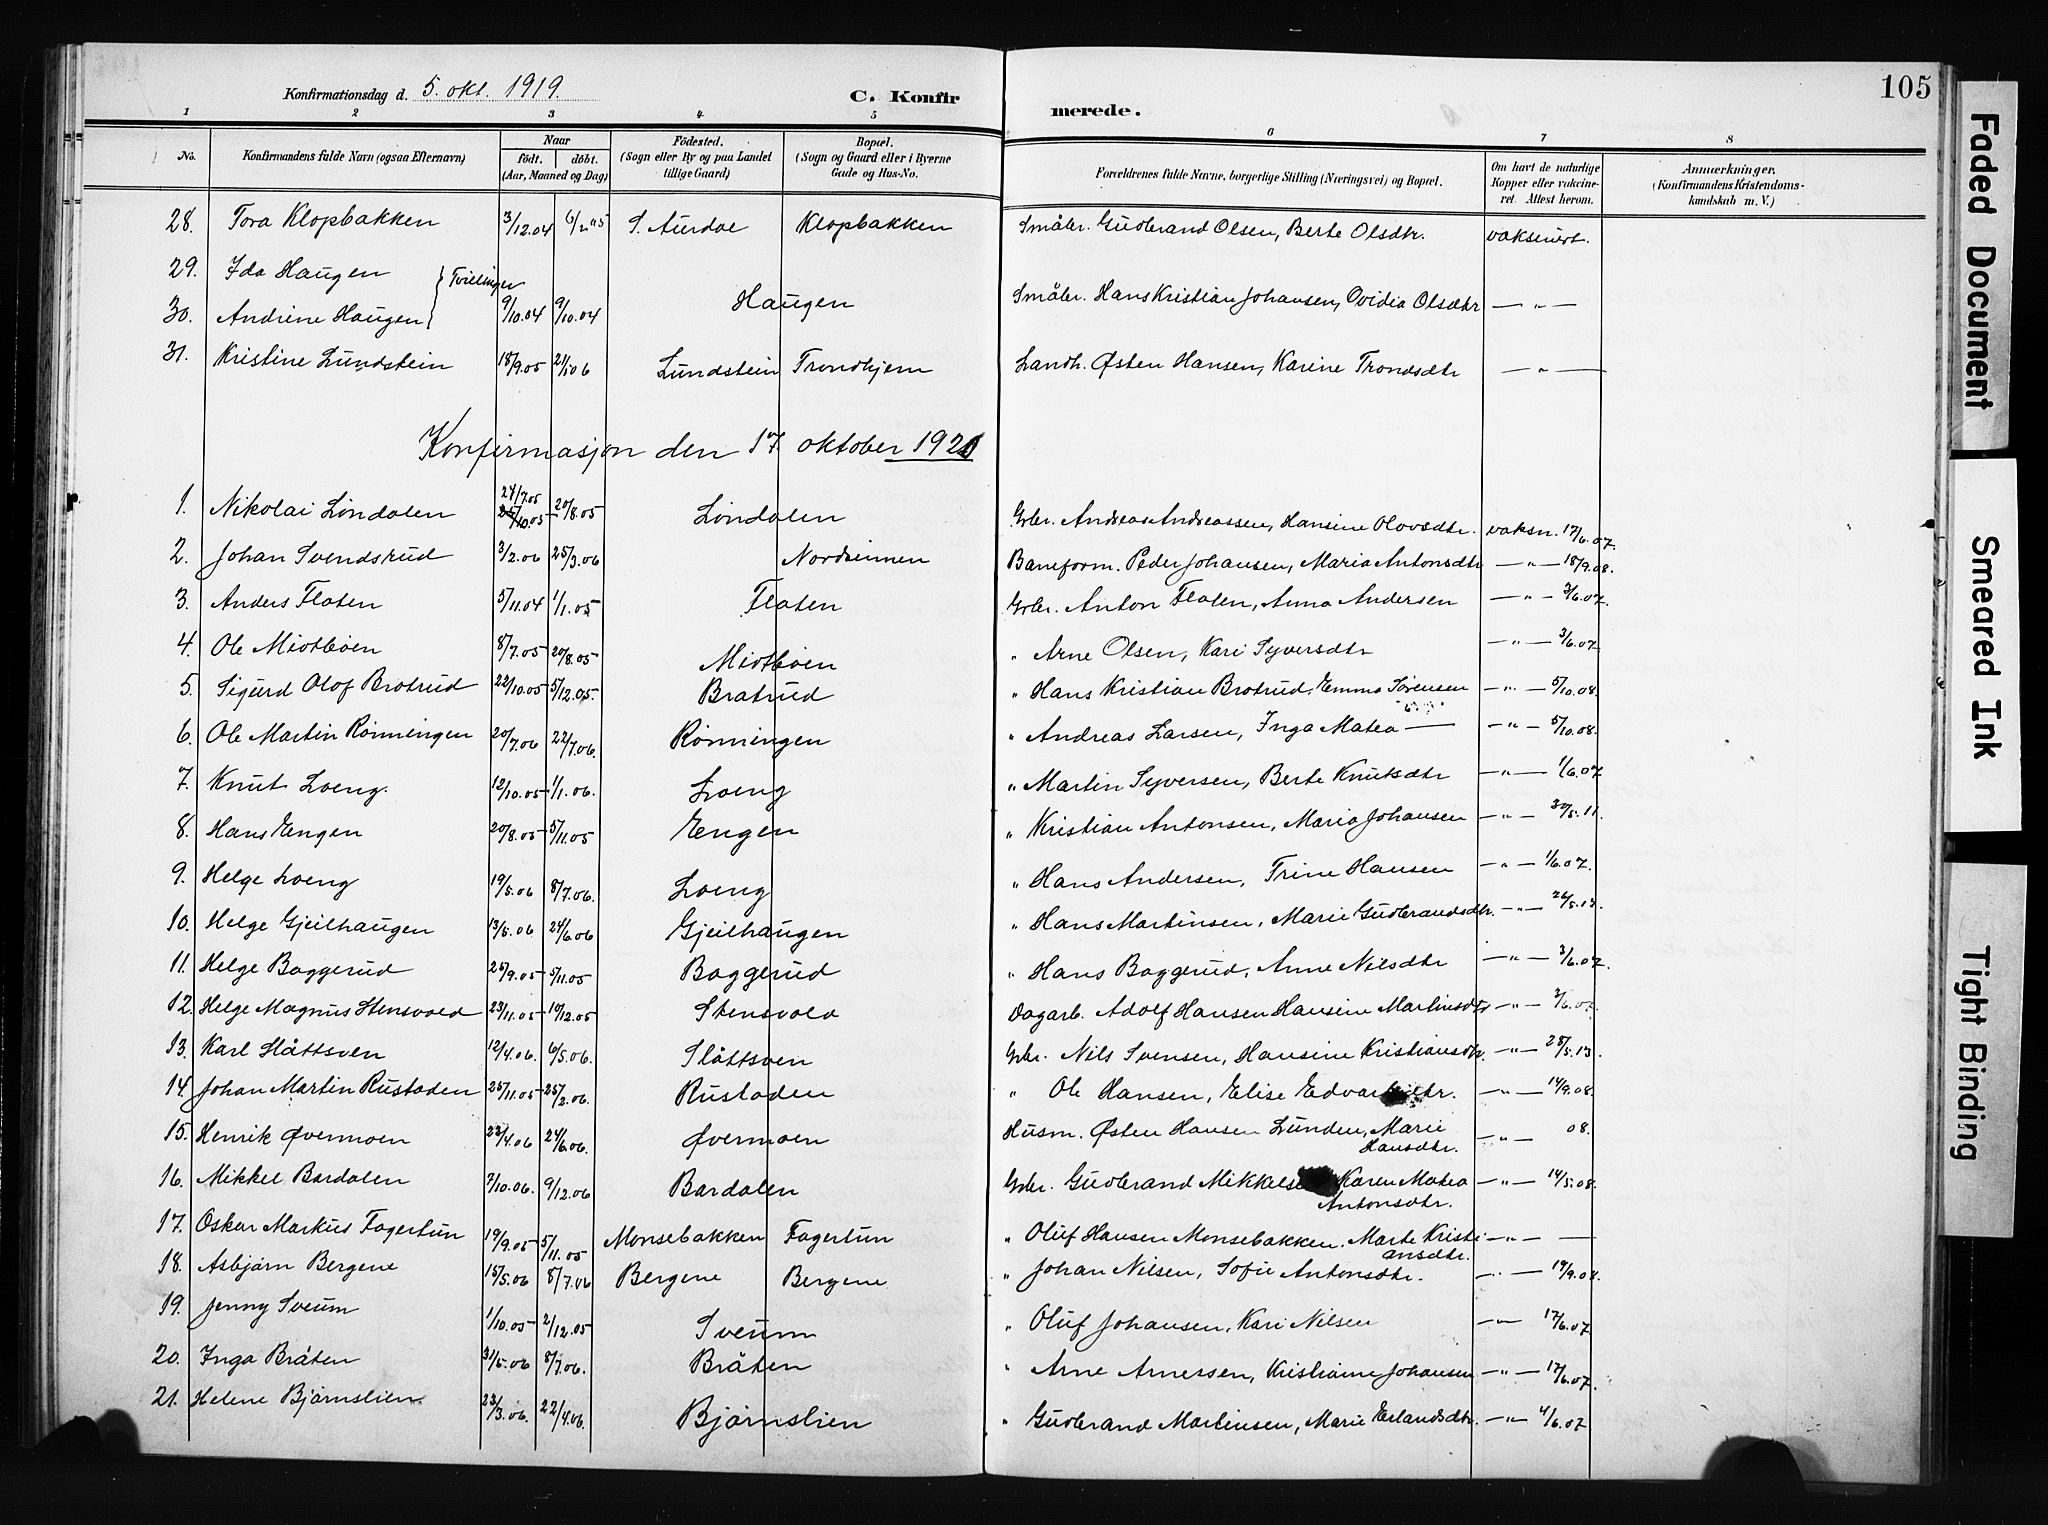 Konfirmationsdag d. 5. okt. 1919. C. Konfirmerede. 105
1 2 3 4 5 6 7 8
No. Konfirmandens fulde Navn (ogsaa Efternavn) Naar födt. döbt. (Aar, Maaned og Dag) Födested. (Sogn eller By og paa Landet tillige Gaard) Bopæl. (Sogn og Gaard eller i Byerne Gade og Hus-No. Forældrenes fulde Navne, borgerlige Stilling (Næringsvei) og Bopæl. Om havt de naturlige Kopper eller vakcineret. Attest herom. Anmærkninger. (Konfirmandens Kristendomskundskab m. V.)
28. Tora Klopbakken 3/12.04 6/2 05 S. Aurdal Klopbakken Småbr. Gudbrand Olsen, Berte Olsdtr. vaksinert.
29. Ida Haugen } Tvillinger
30. Andrine Haugen 9/10.04 9/10.04 Haugen Småbr. Hans Kristian Johansen, Ovidia Olsdtr — " —
31. Kristine Lundstein 18/9.05 21/1 06 Lundstein Trondhjem Landh. Østen Hansen, Karine Trondsdtr — " —
Konfirmasjon den 17. oktober 1920
1. Nikolai Lundalen 24/7.05 20/8.05 Lundalen Gbr. Andreas Andreassen, Hansine Olovsdtr. vaksn. 17/6.07.
2. Johan Svendsrud 3/2.06 25/3.06 Nordsinnen Baneform. Peder Johansen, Maria Antonsdtr — " — 18/9.08.
3. Anders Flaten 5/11.04 1/1.05 Flaten Gbr. Anton Flaten, Anna Andersen — " — 3/6.07.
4. Ole Midtbøen 8/7.05 20/8.05 Midtbøen " Arne Olsen, Kari Syversdtr — " — 3/6.07
5. Sigurd Olof Bratrud 22/10.05 5/12.05 Bratrud " Hans Kristian Bratrud, Emma Sørensen — " — 5/10.08.
6. Ole Martin Rønningen 20/7.06 22/7.06. Rønningen " Andreas Larsen, Inga Matea — — " — 5/10.08.
7. Knut Loeng. 12/10.05 1/1.06. Loeng " Martin Syversen, Berte Knutsdtr — " — 1/6.07
8. Hans Engen 20/8.05 5/11.05 Engen " Kristian Antonsen, Maria Johansen — " — 30/5.11.
9. Helge Loeng 19/5.06 8/7.06. Loeng " Hans Andersen, Trine Hansen — " — 1/6.07.
10. Helge Gjeilhaugen 13/5.06 24/6.06 Gjeilhaugen " Hans Martinsen, Marie Gudbrandsdtr. — " — 26/5.13.
11. Helge Baggerud 25/9.05 5/11.05 Baggerud " Hans Baggerud, Anne Nilsdtr — " — 3/6.07.
12. Helge Magnus Stensvold 23/11.05 10/12.05 Stensvold Dagarb. Adolf Hansen Hansine Martinsdtr — " — 3/6.07.
13. Karl Slåttsven 12/4.06. 6/5.06. Slåttsven Gbr. Nils Svensen, Hansine Kristiansdtr. — " — 28/5.13.
14. Johan Martin Rustaden 25/11.05 25/2.06. Rustaden " Ole Hansen, Elise Edvardsdtr. — " — 14/9.08.
15. Henrik Øvermoen 22/4.06 24/6.06. Øvermoen Husm. Østen Hansen Lunden, Marie Hansdtr. — " — 08.
16. Mikkel Bardalen 7/10.06. 9/12.06 Bardalen Gbr. Gudbrand Mikkelsen Karen Matea Antonsdtr. — " — 14/5.08.
17. Oskar Markus Fagertun 19/9.05 5/11.05 Monsebakken Fagertun " Oluf Hansen Monsebakken. Marte Kristiansdtr. — " — —
18. Asbjørn Bergene 15/5.06 8/7.06 Bergene Bergene " Johan Nilsen, Sofie Antonsdtr. — " — 19/9.08.
19. Jenny Sveum 1/10.05 2/12.05 Sveum " Oluf Johansen, Kari Nilsen — " — 17/6.07
20. Inga Bråten 31/5.06 8/7.06. Bråten " Arne Arnersen, Kristiane Johansen — " — 17/6.07.
21. Helene Bjørnslien 23/3.06. 22/4.06. Bjørnslien " Gudbrand Martinsen, Marie Erlandsdtr. — " — 4/6.07
Faded Document
Smeared Ink
Tight Binding